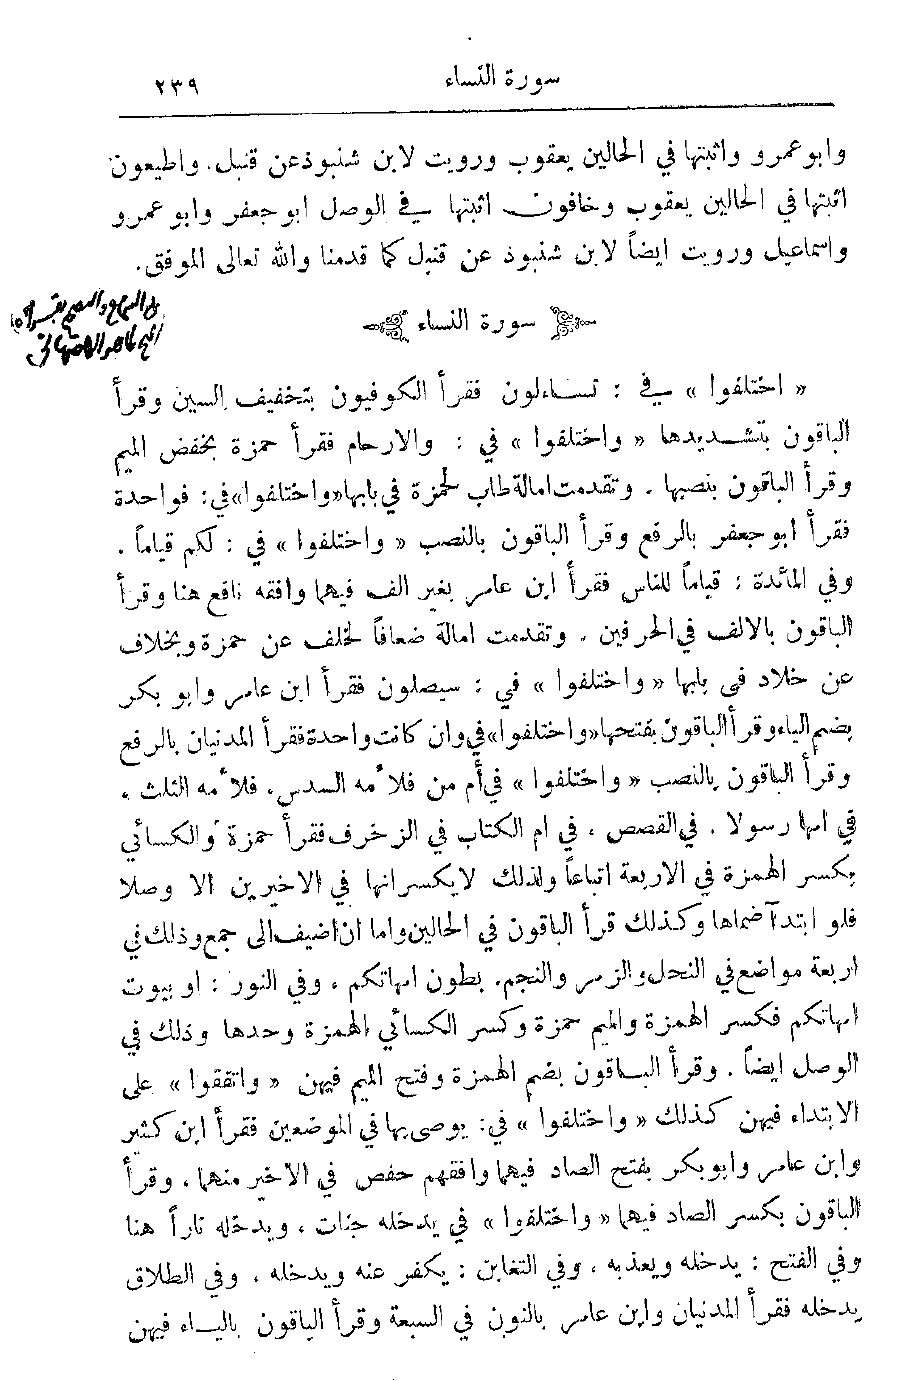 سورة النساء ٢٣٩
وابو عمرو واثبتها في الحالين يعقوب ورويت لابن شنبوذ عن قنبل. واطيعون
اثبتها في الحالين يعقوب وخافون اثبتها في الوصل ابو جعفر وابو عمرو
واسماعيل ورويت ايضاً لابن شنبوذ عن قنبل كما قدمنا والله تعالى الموفق.
سورة النساء
« اختلفوا » في : تساءلون فقرأ الكوفيون بتخفيف السين وقرأ
الباقون بتشديدها « واختلفوا » في : والارحام فقرأ حمزة بخفض الميم
وقرأ الباقون بنصبها . وتقدمت امالة طاب لحمزة في بابها «واختلفوا» في: فواحدة
فقرأ ابو جعفر بالرفع وقرأ الباقون بالنصب « واختلفوا » في : لكم قياماً .
وفي المائدة : قياماً للناس فقرأ ابن عامر بغير الف فيهما وافقه نافع هنا وقرأ
الباقون بالالف في الحرفين . وتقدمت امالة ضعافاً لخلف عن حمزة وبخلاف
عن خلاد في بابها « واختلفوا » في : سيصلون فقرأ ابن عامر وابو بكر
بضم الياء وقرأ الباقون بفتحها «واختلفوا» في وان كانت واحدة فقرأ المدنيان بالرفع
وقرأ الباقون بالنصب « واختلفوا » في أم من فلأمه السدس، فلأمه الثلث ،
في امها رسولا . في القصص ، في ام الكتاب في الزخرف فقرأ حمزة والكسائي
بكسر الهمزة في الاربعة اتباعاً ولذلك لايكسرانها في الاخيرين الا وصلا
فلو ابتدآ ضماها وكذلك قرأ الباقون في الحالين واما ان اضيف الى جمع وذلك في
اربعة مواضع في النحل والزمر والنجم. بطون امهاتكم ، وفي النور : او بيوت
امهاتكم فكسر الهمزة والميم حمزة وكسر الكسائي الهمزة وحدها وذلك في
الوصل ايضاً . وقرأ الباقون بضم الهمزة وفتح الميم فيهن « واتفقوا » على
الابتداء فيهن كذلك « واختلفوا » في: يوصى بها في الموضعين فقرأ ابن كثير
وابن عامر وابو بكر بفتح الصاد فيهما وافقهم حفص في الاخير منهما، وقرأ
الباقون بكسر الصاد فيهما « واختلفوا » في يدخله جنات ، ويدخله ناراً هنا
وفي الفتح : يدخله ويعذبه ، وفي التغابن : يكفر عنه ويدخله ، وفي الطلاق
يدخله فقرأ المدنيان وابن عامر بالنون في السبعة وقرأ الباقون بالياء فيهن